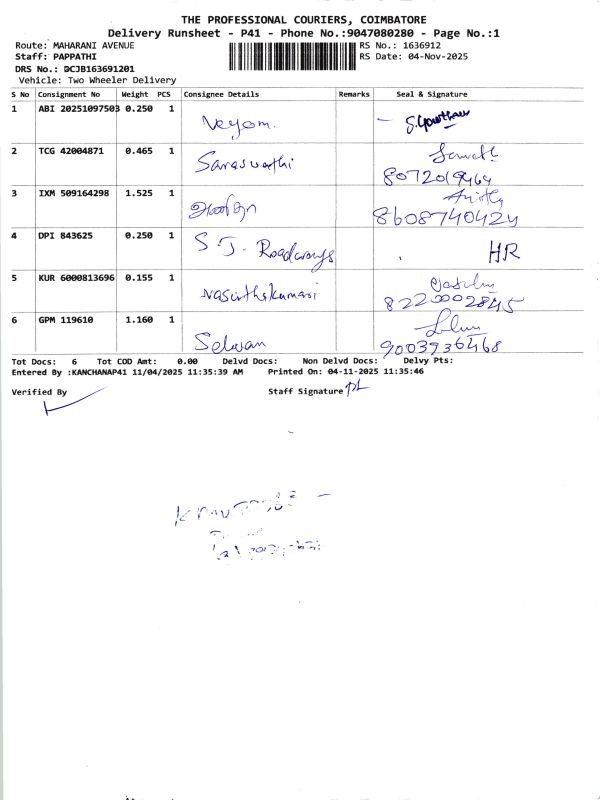 THE PROFESSIONAL COURIERS, COIMBATORE
Delivery Runsheet - P41 - Phone No.:9047080280 - Page No.:1
Route: MAHARANI AVENUE
RS No.: 1636912
Staff: PAPPATHI
RS Date: 04-Nov-2025
DRS No.: DCJB163691201
Vehicle: Two Wheeler Delivery
S No Consignment No Weight PCS Consignee Details Remarks Seal & Signature
1 ABI 20251097503 0.250 1 Veyom. S. Gowtham
2 TCG 42004871 0.465 1 Saraswathi
8072019464
3 IXM 509164298 1.525 1
8608740424
4 DPI 843625 0.250 1 S J. Roadways HR
5 KUR 6000813696 0.155 1 vasinthakumari
8220002845
6 GPM 119610 1.160 1 Selwan
9003936468
Tot Docs: 6 Tot COD Amt: 0.00 Delvd Docs: Non Delvd Docs: Delvy Pts:
Entered By :KANCHANAP41 11/04/2025 11:35:39 AM Printed On: 04-11-2025 11:35:46
Verified By Staff Signature